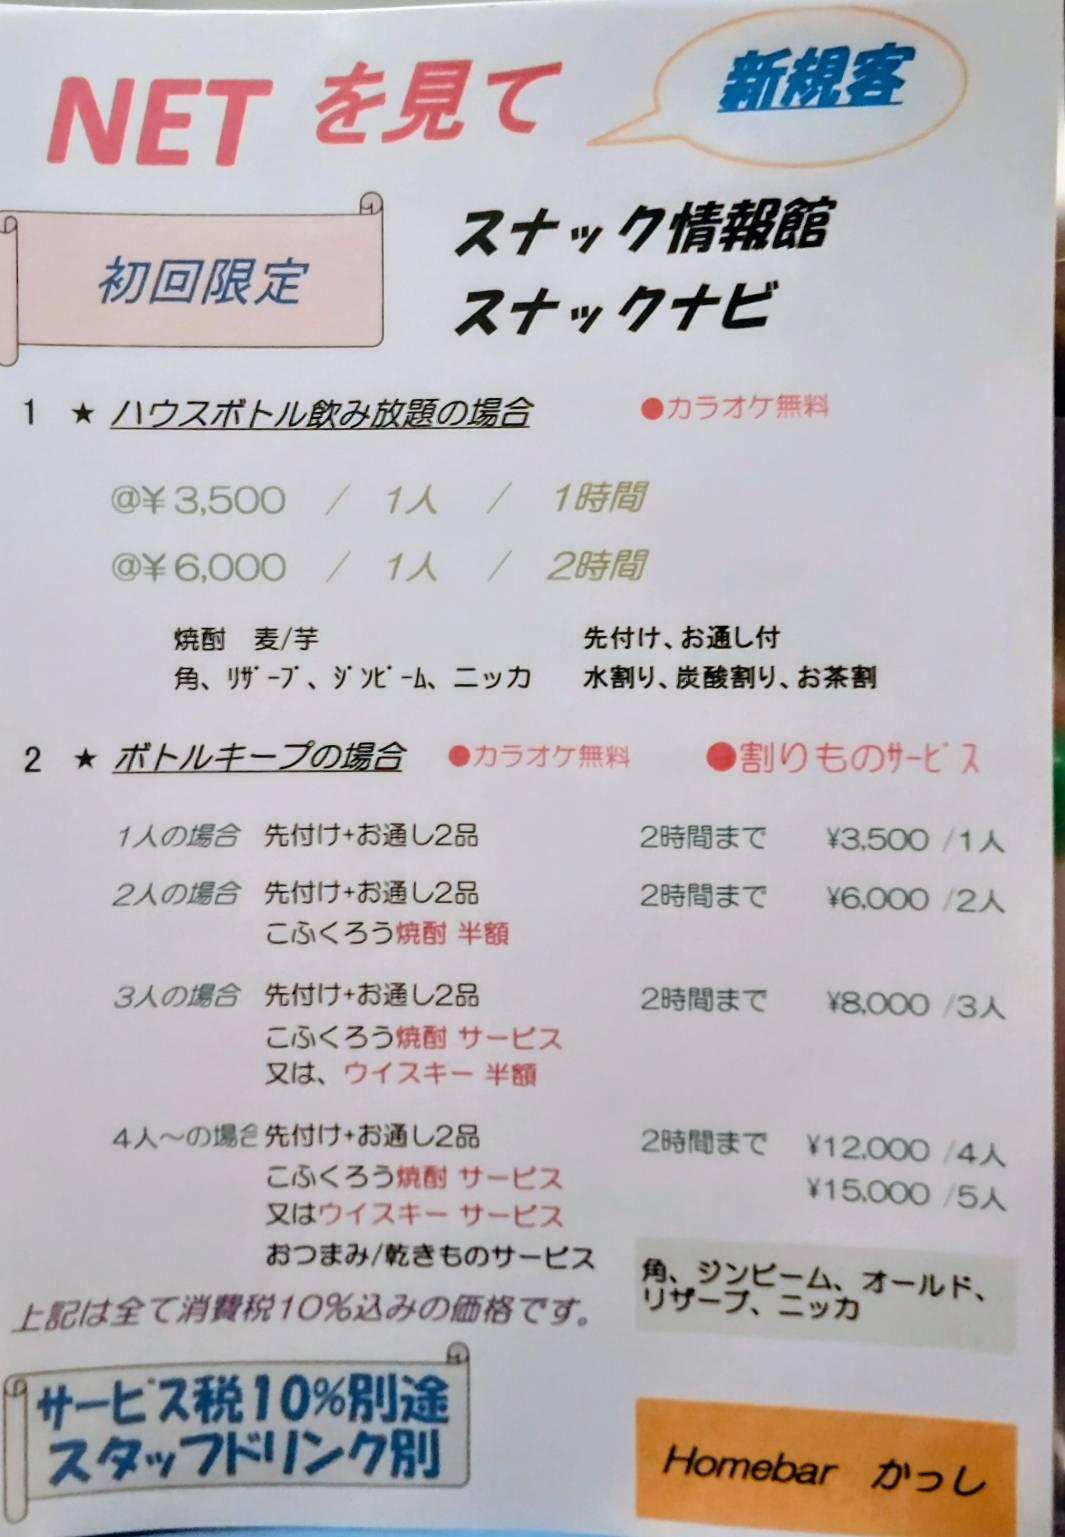 NET を見て
新規客
初回限定
スナック情報館
スナックナビ
1 ★ ハウスボトル飲み放題の場合 ●カラオケ無料
@¥3,500 / 1人 / 1時間
@¥6,000 / 1人 / 2時間
焼酎 麦/芋 先付け、お通し付
角、ﾘｻﾞｰﾌﾞ、ｼﾞﾝﾋﾞｰﾑ、ニッカ 水割り、炭酸割り、お茶割
2 ★ ボトルキープの場合 ●カラオケ無料 ●割りものｻｰﾋﾞｽ
1人の場合 先付け+お通し2品 2時間まで ¥3,500 /1人
2人の場合 先付け+お通し2品 2時間まで ¥6,000 /2人
こふくろう焼酎 半額
3人の場合 先付け+お通し2品 2時間まで ¥8,000 /3人
こふくろう焼酎 サービス
又は、ウイスキー 半額
4人～の場合 先付け+お通し2品 2時間まで ¥12,000 /4人
こふくろう焼酎 サービス ¥15,000 /5人
又はウイスキー サービス
おつまみ/乾きものサービス
角、ジンビーム、オールド、
リザーブ、ニッカ
上記は全て消費税10%込みの価格です。
サービス税10%別途
スタッフドリンク別
Homebar かっし